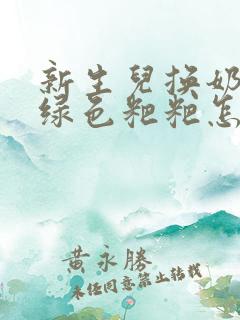 新生兒换奶
绿色粑粑怎
黄永勝
未经同意禁止转载